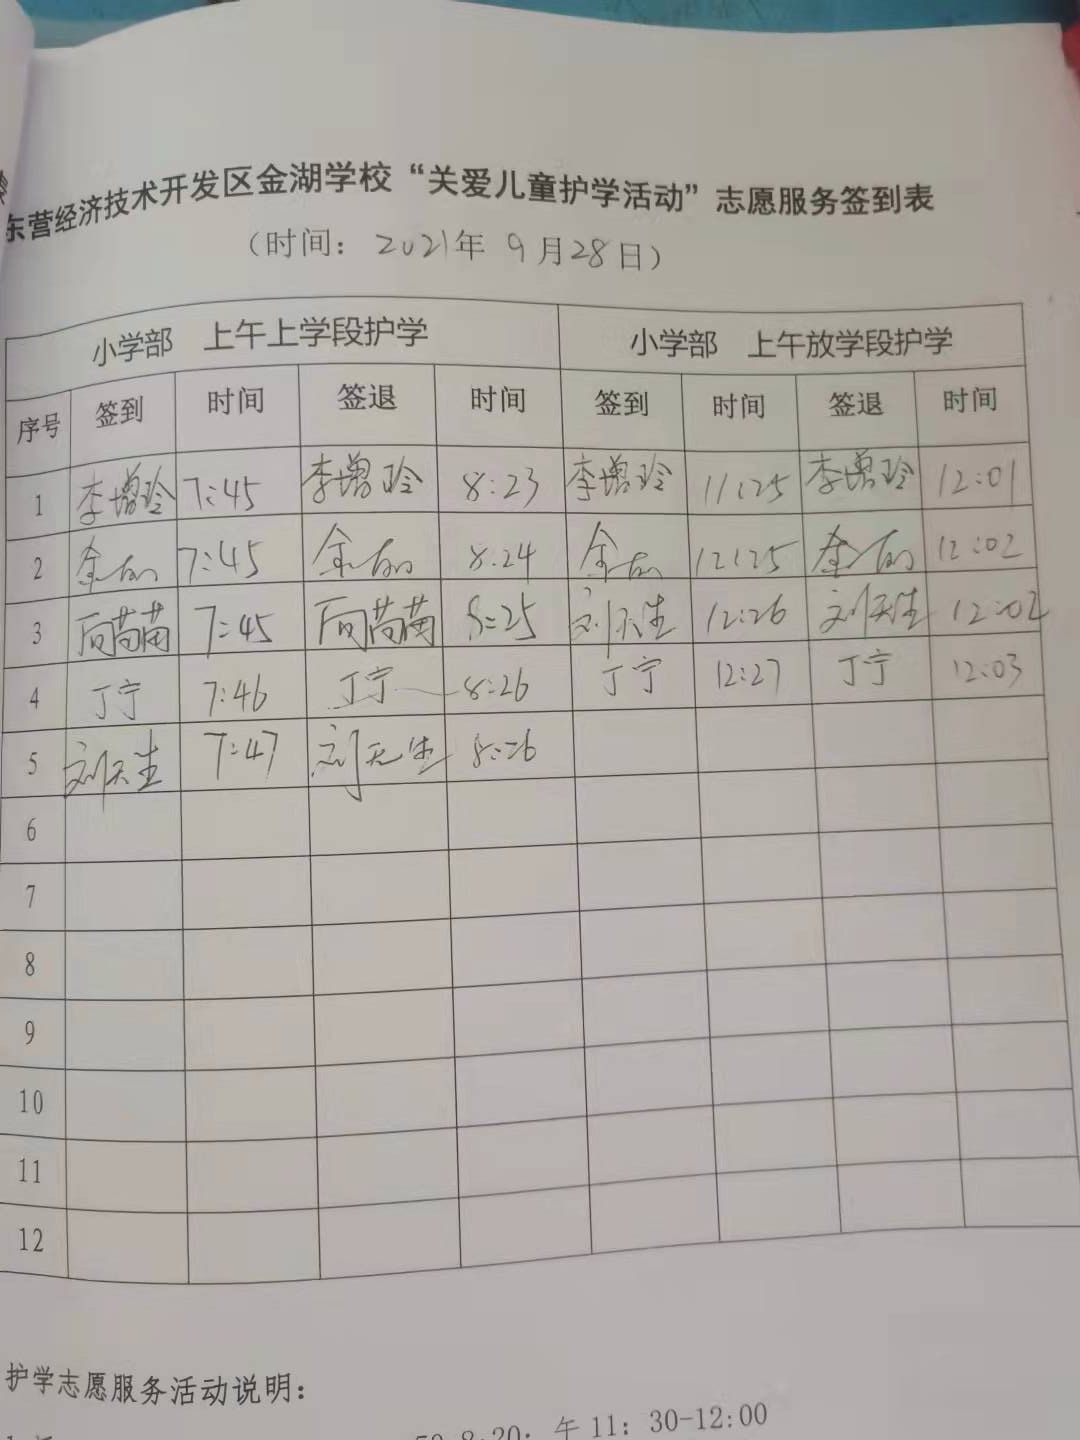 东营经济技术开发区金湖学校“关爱儿童护学活动”志愿服务签到表
（时间：2021年 9月28日）
小学部 上午上学段护学 小学部 上午放学段护学
序号 签到 时间 签退 时间 签到 时间 签退 时间
1 李增玲 7:45 李增玲 8:23 李增玲 11:25 李增玲 12:01
2 7:45 8:24 12:25 12:02
3 7:45 8:25 刘天生 12:26 刘天生 12:02
4 丁宁 7:46 丁宁 8:26 丁宁 12:27 丁宁 12:03
5 刘天生 7:47 刘天生 8:26
6
7
8
9
10
11
12
护学志愿服务活动说明：
50-8:20; 午 11: 30-12:00